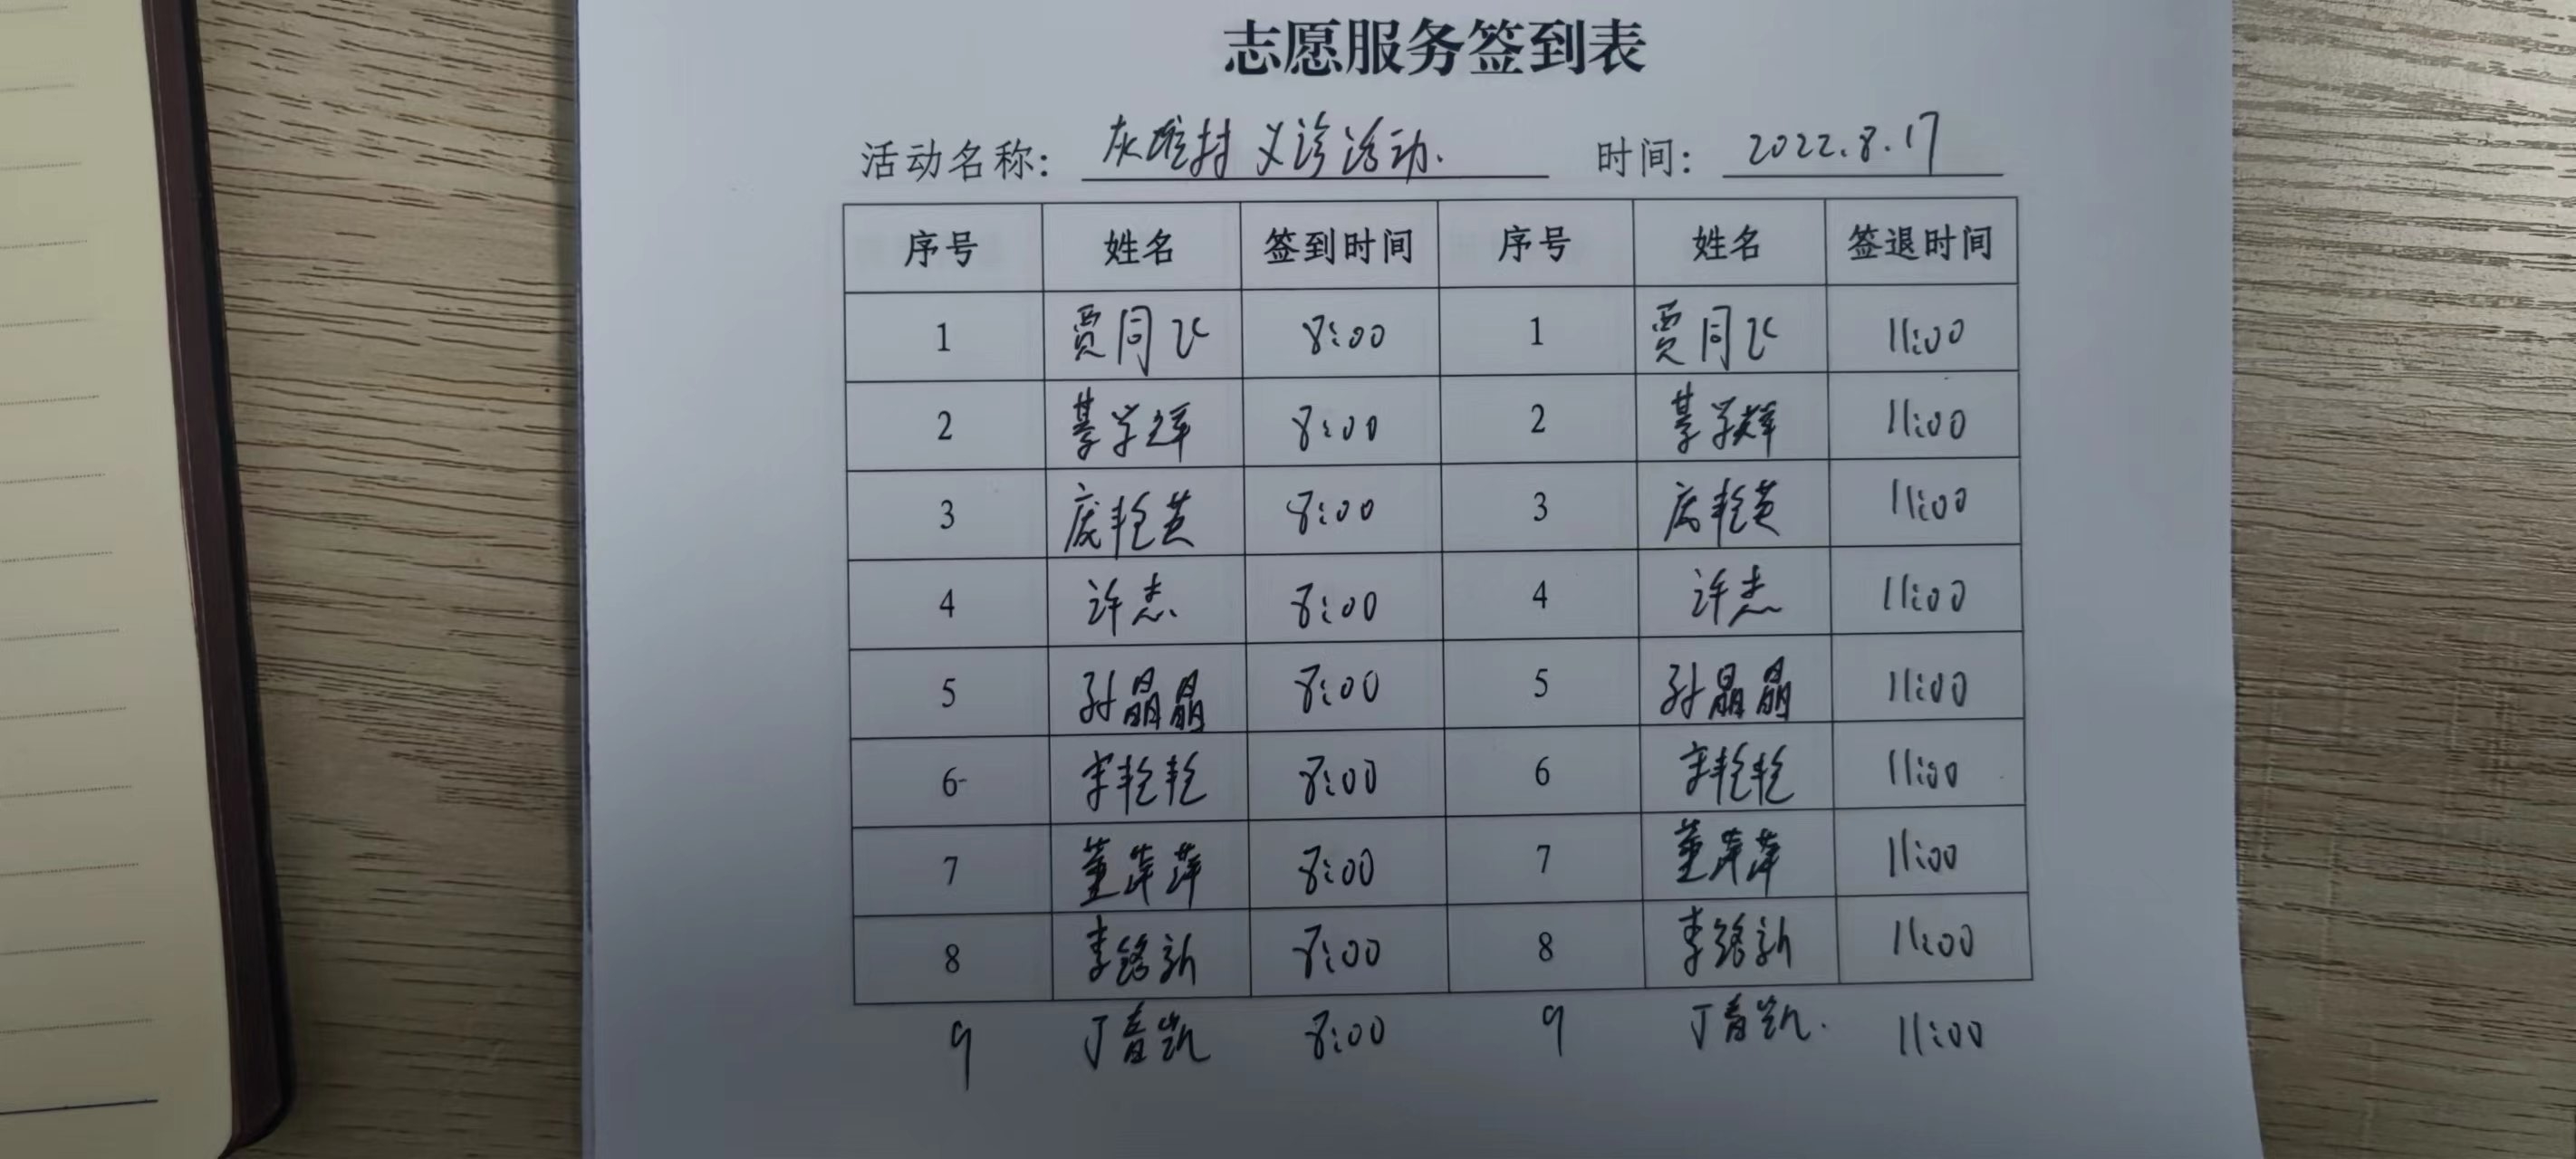 志愿服务签到表
活动名称: 灰堆村义诊活动. 时间: 2022.8.17
序号 姓名 签到时间 序号 姓名 签退时间
1 贾同飞 8:00 1 贾同飞 11:00
2 綦学辉 8:00 2 綦学辉 11:00
3 庞艳英 8:00 3 庞艳英 11:00
4 许杰 8:00 4 许杰 11:00
5 孙晶晶 8:00 5 孙晶晶 11:00
6 宋艳艳 8:00 6 宋艳艳 11:00
7 董萍萍 8:00 7 董萍萍 11:00
8 李铭新 8:00 8 李铭新 11:00
9 丁凯 8:00 9 丁凯. 11:00